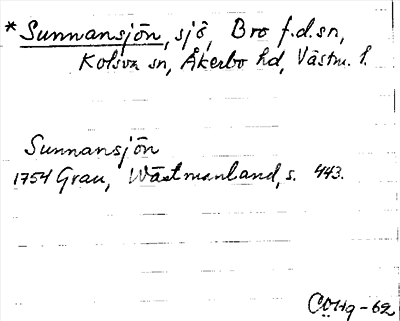 * Sunnansjön, sjö, Bro f.d.sn,
Kolsva sn, Åkerbo hd, Västm. l.
Sunnansjön
1754 Grau, Wästmanland, s. 443.
CÖHg-62